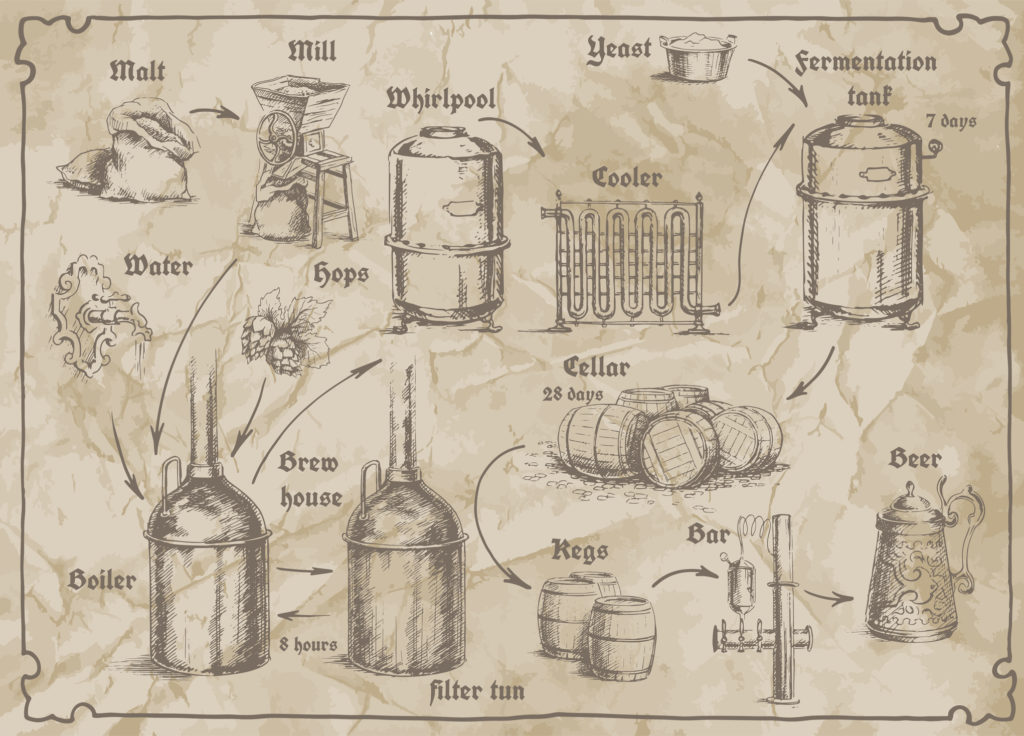 Malt
Mill
Whirlpool
Yeast
Fermentation
tank
7 days
Cooler
Water
Hops
Cellar
28 days
Brew
house
Boiler
8 hours
filter tun
Kegs
Bar
Beer